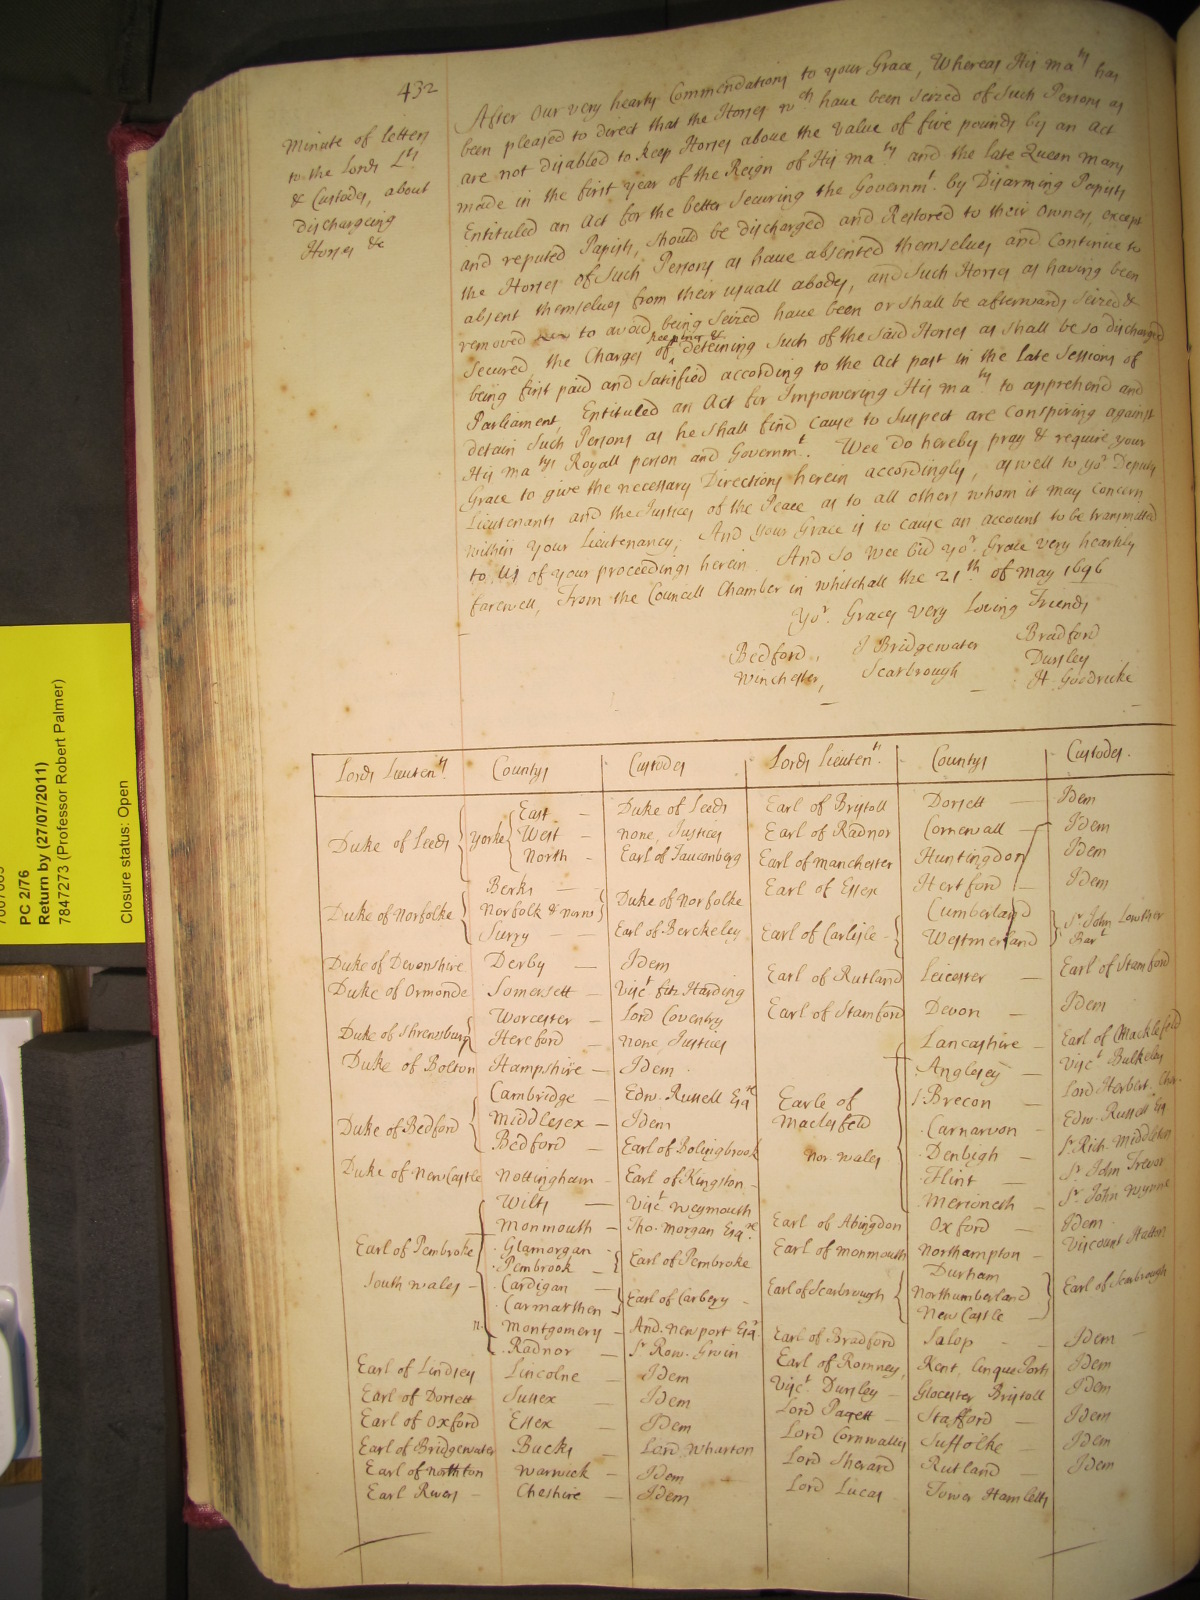 432
Minute of letters
to the Lords Lts
& Custodes, about
Dischargeing
Horses &c
After Our very hearty Commendations to your Grace, Whereas His maty has
been pleased to direct that the Horses wch have been seized of Such Persons as
are not disabled to keep Horses above the value of five pounds by an Act
made in the first year of the Reign of His maty and the late Queen mary
Entituled an Act for the better Securing the Governmt. by Disarming Papists
and reputed Papists, should be discharged and Restored to their Owners, except
the Horses of Such Persons as have absented themselves and Continue to
absent themselves from their usuall abodes, and Such Horses as having been
removed to avoid being Seized have been or shall be afterwards seized &
Secured, the Charges of keeping & deteining Such of the said Horses as shall be so discharged
being first paid and satisfied according to the Act past in the late Sessions of
Parliament, Entituled an Act for Impowering His maty to apprehend and
detain Such Persons as he shall find cause to Suspect are Conspiring against
His matys Royall person and Governmt. Wee Do hereby pray & require your
Grace to give the necessary Directions herein accordingly, aswell to yor Deputy
Lieutenants and the Justices of the Peace as to all others whom it may Concern
within your Lieutenancy; And your Grace is to cause an account to be transmitted
to Us of your proceedings herein. And So wee bid yor. Grace very heartily
farewell, From the Councill Chamber in whitehall the 21th of May 1696
Yor. Graces very Loving Friends
Bedford, J Bridgewater Bradford
Winchester, Scarbrough Dursley
H. Goodricke
Lords Lieutents. Countys Custodes Lords Lieutents. Countys Custodes.
Duke of Leeds Yorke East — Duke of Leeds
West — none, Justices
North — Earl of Fauconberg
Duke of Norfolke Berks — Duke of Norfolke
Norfolk & Norwch
Surry — Earl of Berckeley
Duke of Devonshire Derby — Idem
Duke of Ormonde Somersett — Visct fitz Harding
Duke of Shrewsbury Worcester — Lord Coventry
Hereford — none, Justices
Duke of Bolton Hampshire — Idem
Duke of Bedford Cambridge — Edw. Russell Esqre
Middlesex — Idem
Bedford — Earl of Bolingbrook
Duke of NewCastle Nottingham — Earl of Kingston
Earl of Pembroke Wilts — Visct Weymouth
Monmouth — Tho. Morgan Esqre.
Glamorgan — Earl of Pembroke
Pembrook —
South Wales Cardigan — Earl of Carbery
Carmarthen
Montgomery — And. Newport Esqr.
Radnor — Sr Row. Gwin
Earl of Lindsey Lincolne — Idem
Earl of Dorsett Sussex — Idem
Earl of Oxford Essex — Idem
Earl of Bridgewater Bucks — Lord Wharton
Earl of Northton Warwick — Idem
Earl Rivers — Cheshire — Idem
Earl of Bristoll Dorsett — Idem
Earl of Radnor Cornewall — Idem
Earl of Manchester Huntingdon Idem
Earl of Essex Hertford — Idem
Earl of Carlisle — Cumberland Sr John Lowther
Westmerland Bart
Earl of Rutland Leicester — Earl of Stamford
Earl of Stamford Devon — Idem
Earle of Lancashire — Earl of Macklesfeld
Maclesfeld Anglesey — Visct Bulkeley
nor. Wales Brecon — Lord Herbert
Carnarvon — Edw. Russell Esq
Denbigh — Sr Rich. Middleton
Flint — Sr John Trevor
Merioneth — Sr John Wynne
Earl of Abingdon Oxford — Idem
Earl of Monmouth Northampton — Viscount Hatton
Earl of Scarbrough Durham Earl of Scarbrough
Northumberland
New Castle —
Earl of Bradford Salop — Idem
Earl of Romney, Kent, Cinque Ports Idem
Visct Dursley — Glocester Bristoll Idem
Lord Pagett — Stafford — Idem
Lord Cornwallis Suffolke — Idem
Lord Sherard Rutland — Idem
Lord Lucas Tower Hamletts
PC 2/76
Return by (27/07/2011)
7847273 (Professor Robert Palmer)
Closure status: Open